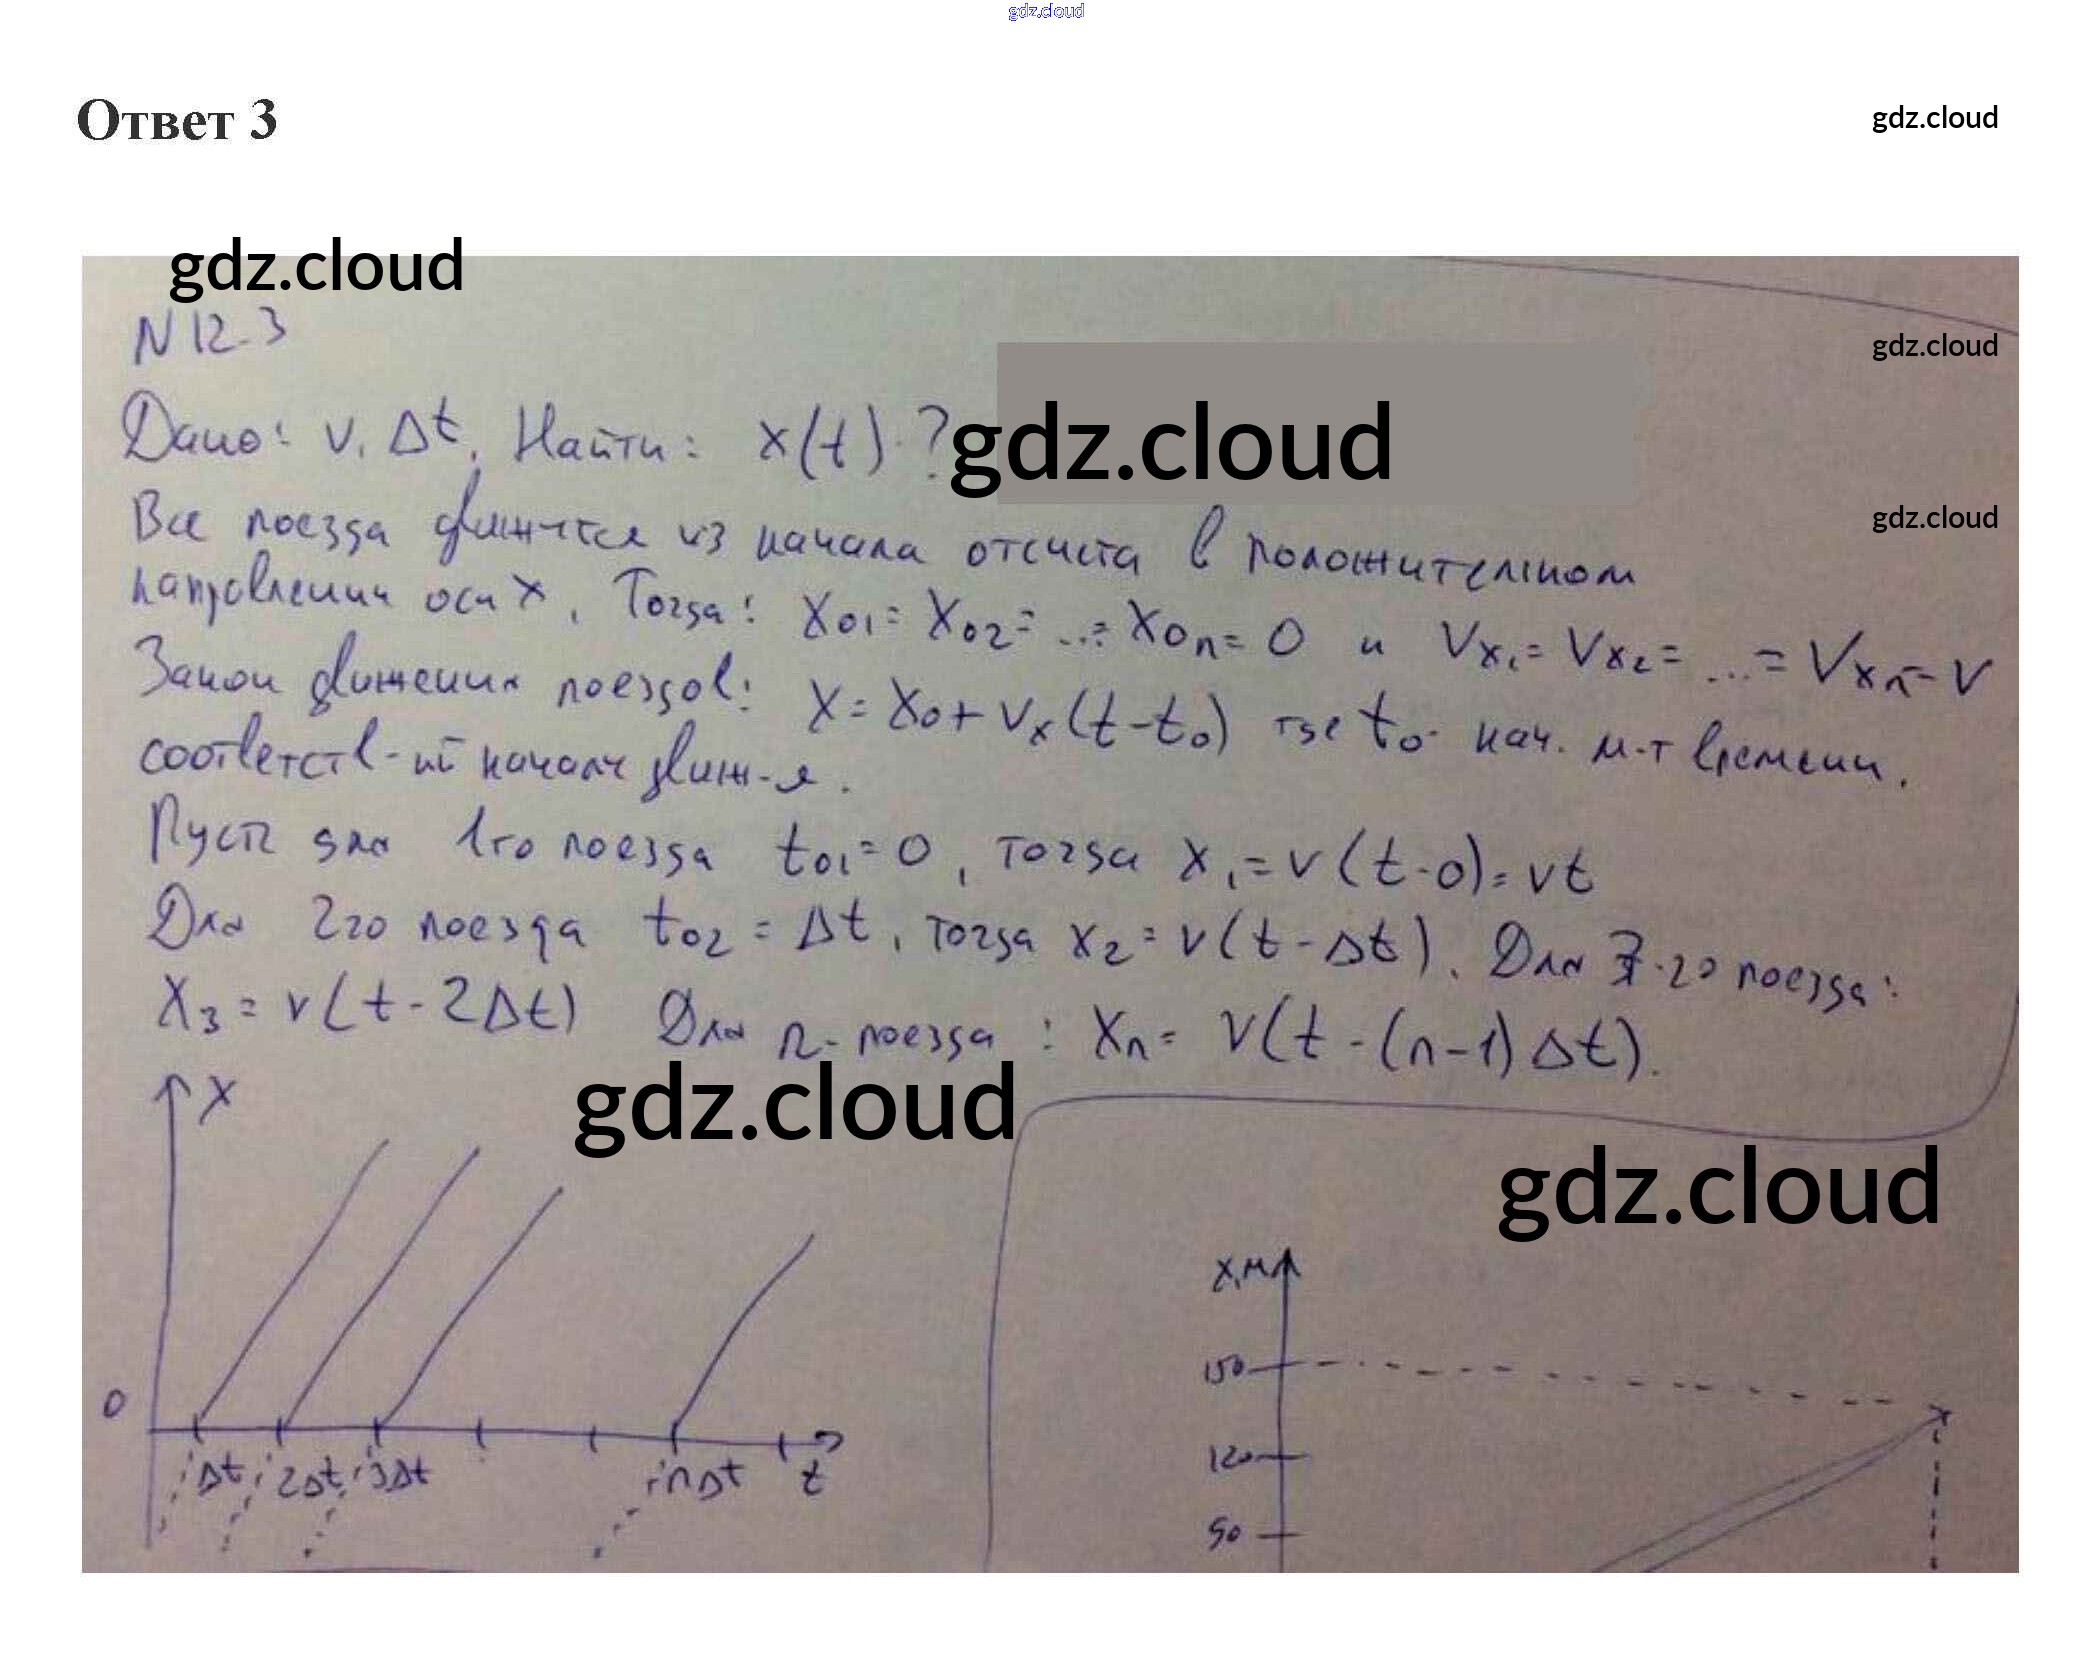 gdz.cloud
Ответ 3
gdz.cloud
gdz.cloud
N 12.3
gdz.cloud
Дано: v, Δt. Найти: x(t)-?
gdz.cloud
Все поезда движутся из начала отсчета в положительном
gdz.cloud
направлении оси x, Тогда: X₀₁ = X₀₂ = ... = X₀ₙ = 0 и Vx₁ = Vx₂ = ... = Vxₙ = V
Закон движения поездов: X = X₀ + vₓ(t-t₀) где t₀- нач. м-т времени,
соответств-ий началу движ-я.
Пусть для 1го поезда t₀₁ = 0, тогда x₁ = v(t-0) = vt
Для 2го поезда t₀₂ = Δt, тогда x₂ = v(t-Δt). Для 3-го поезда:
X₃ = v(t-2Δt) Для n-поезда: Xₙ = V(t-(n-1)Δt).
gdz.cloud
gdz.cloud
X
0
Δt 2Δt 3Δt nΔt t
x,м
150
120
90